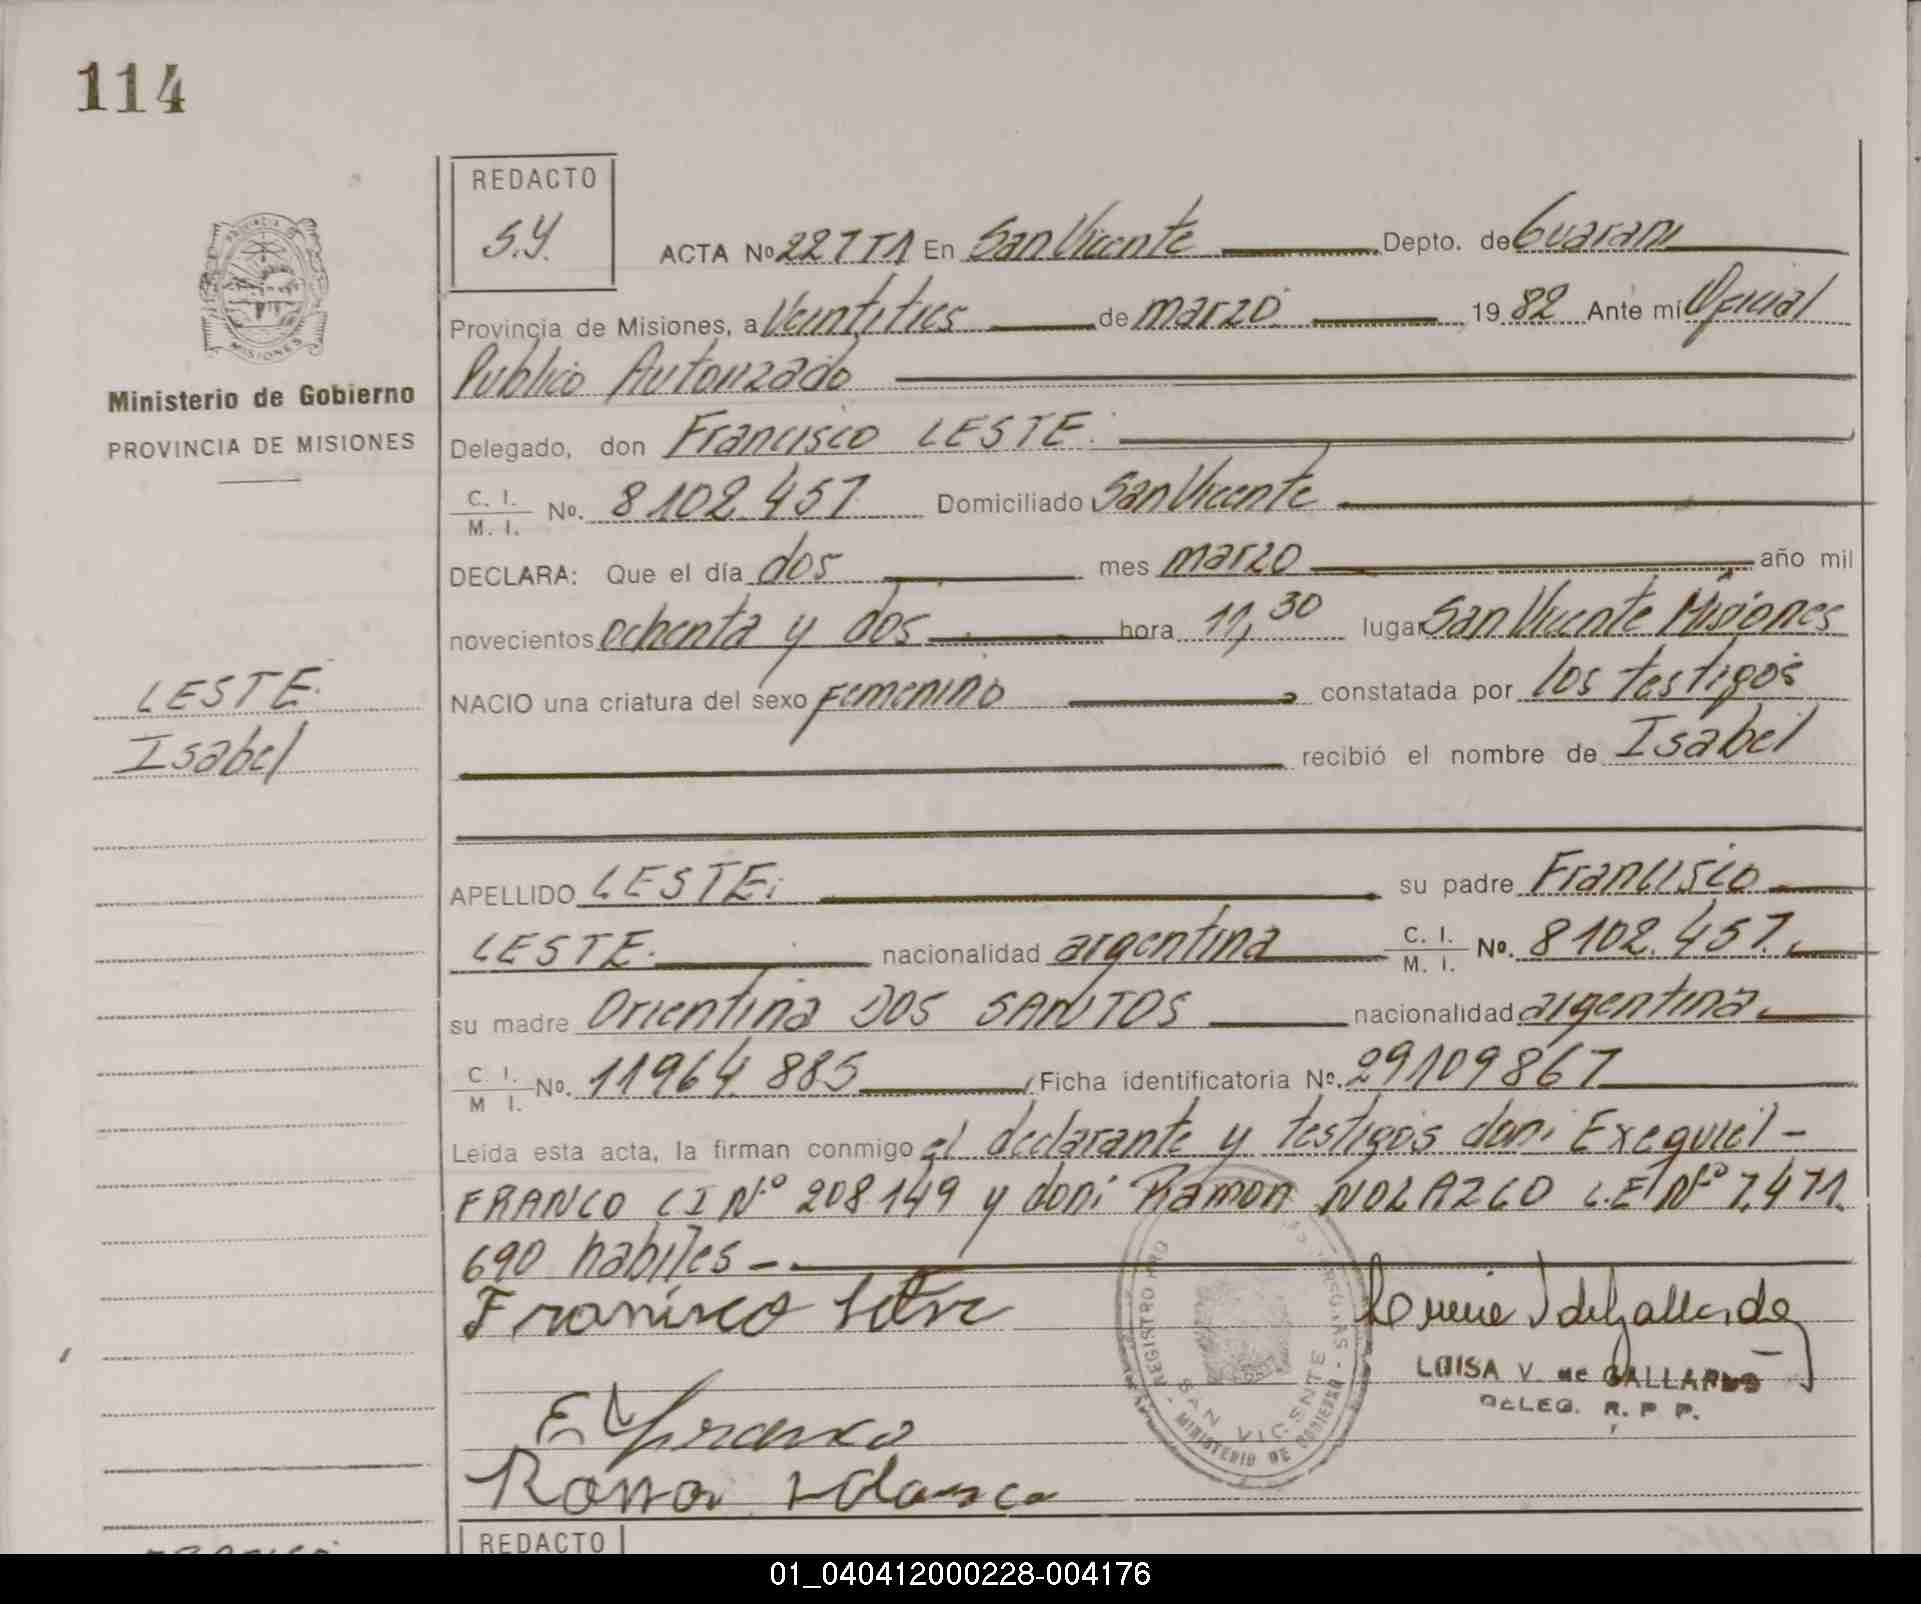 114
REDACTO
S.Y.
ACTA Nº 227 T1 En San Vicente Depto. de Guarani
PROVINCIA DE
MISIONES
Provincia de Misiones, a Veintitres de marzo 1982 Ante mí Oficial
Ministerio de Gobierno
PROVINCIA DE MISIONES
Publico Autorizado
Delegado, don Francisco LESTE.
C. I.
M. I. No. 8102.457 Domiciliado San Vicente
DECLARA: Que el día dos mes marzo año mil
novecientos ochenta y dos hora 11,30 lugar San Vicente Misiones
LESTE.
Isabel
NACIO una criatura del sexo Femenino constatada por los testigos
recibió el nombre de Isabel
APELLIDO LESTE: su padre Francisco
LESTE. nacionalidad argentina C. I.
M. I. No. 8102.457.
su madre Orientina DOS SANTOS nacionalidad argentina.
C. I.
M I. No. 11964.885 Ficha identificatoria No. 29109867
Leída esta acta, la firman conmigo el declarante y testigos don: Exequiel -
FRANCO CI Nº 208149 y don: Ramon NOLAZCO L.E Nº 7.471.
690 habiles -
Francisco
E Franco
LUISA V. de GALLARDO
DELEG. R. P. P.
REGISTRO PRO
PERSONAS
SAN VICENTE
MINISTERIO DE GOBIERNO
REDACTO
01_040412000228-004176